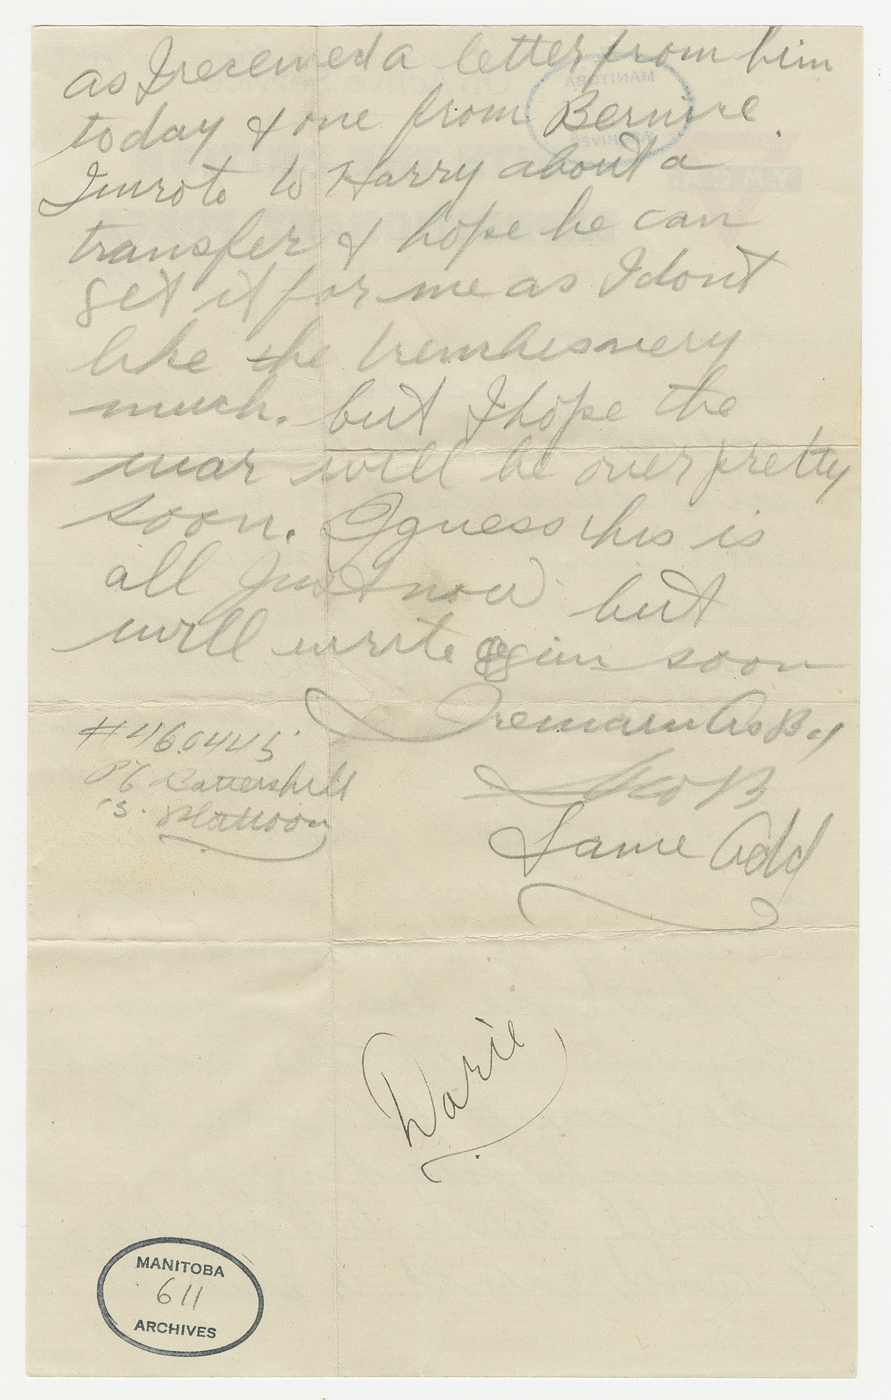 as I received a letter from him
today & one from Bernice.
I wrote to Harry about a
transfer & hope he can
get it for me as I dont
like the trenches very
much. but I hope the
war will be over pretty
soon. I guess this is
all Just now but
will write agin soon
I remain As By
Geo B
Same Add
#460445
Pt Battershill
S. Platoon
Darie
MANITOBA
611
ARCHIVES